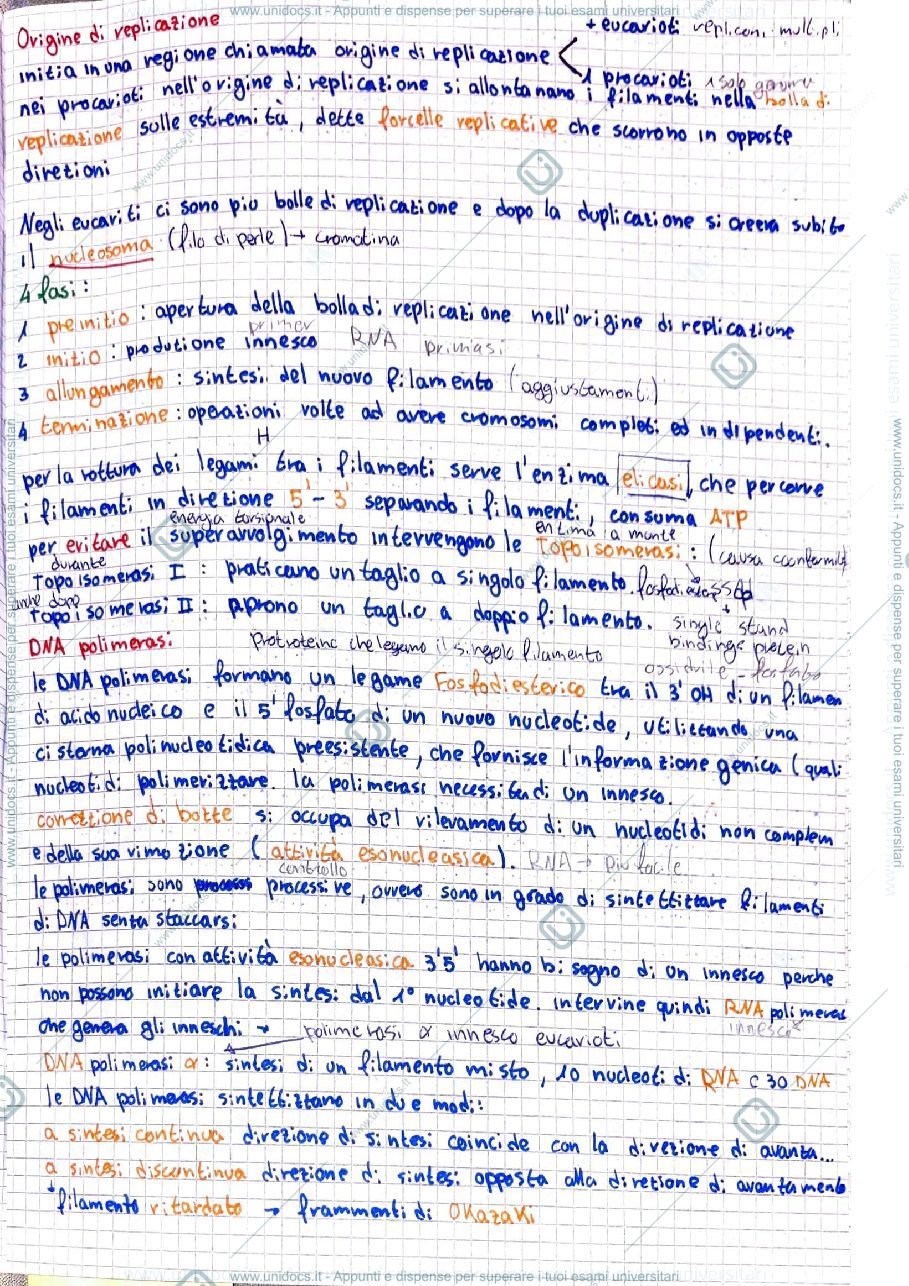 www.unidocs.it - Appunti e dispense per superare i tuoi esami universitari
Origine di replicazione
+ eucarioti repliconi multipli
initia in una regione chiamata origine di replicazione <
1 procarioti 1 solo
nei procarioti nell'origine di replicazione si allontanano i filamenti nella bolla di
replicazione sulle estremità, dette forcelle replicative che scorrono in opposte
diretioni
Negli eucariti ci sono piu bolle di replicatione e dopo la duplicatione si creera subito
il nucleosoma (filo di perle) → cromatina
4 fasi:
1 preinitio : apertura della bolla di replicazione nell'origine di replicatione
primer
2 initio : produtione innesco RNA primiasi
3 allungamento : sintesi del nuovo filamento (aggiustamenti)
4 terminazione : operationi volte ad avere cromosomi completi ed indipendenti.
H
per la rottura dei legami tra i filamenti serve l'enzima elicasi, che percorre
i filamenti in diretione 5'-3' separando i filamenti, consuma ATP
energia torsionale
entima a monte
per evitare il superavvolgimento intervengono le topoisomerasi : (causa
durante
Topoisomerasi I : praticano un taglio a singolo filamento.
anche dopo
Topoisomerasi II : aprono un taglio a doppio filamento.
single stand
DNA polimerasi
Protroteine che legano il singolo filamento
bindings protein
ossidrile - fosfato
le DNA polimerasi formano un legame Fosfodiesterico tra il 3' OH di un filamen
di acido nucleico e il 5' fosfato di un nuovo nucleotide, utilittando una
cisterna polinucleotidica preesistente, che fornisce l'informazione genica (quali
nucleotidi polimerittare. la polimerasi necessita di un innesco.
correttione di botte si occupa del rilevamento di un nucleotidi non complem
e della sua rimozione (attività esonucleasica). RNA → più facile
controllo
le polimerasi sono processive, ovvero sono in grado di sintettittare filamenti
di DNA senta staccarsi
le polimerasi con attività esonucleasica 3'5' hanno bisogno di un innesco perche
non possono initiare la sintesi dal 1° nucleotide. intervine quindi RNA polimeras
innesco
che genera gli inneschi → polimerasi α innesco eucarioti
DNA polimerasi α : sintesi di un filamento misto, 10 nucleotidi RNA e 30 DNA
le DNA polimerasi sintettittano in due modi:
a sintesi continua direzione di sintesi coincide con la diretione di avanta...
a sintesi discontinua direzione di sintesi opposta alla diretione di avantamento
filamento ritardato → frammenti di Okazaki
www.unidocs.it - Appunti e dispense per superare i tuoi esami universitari